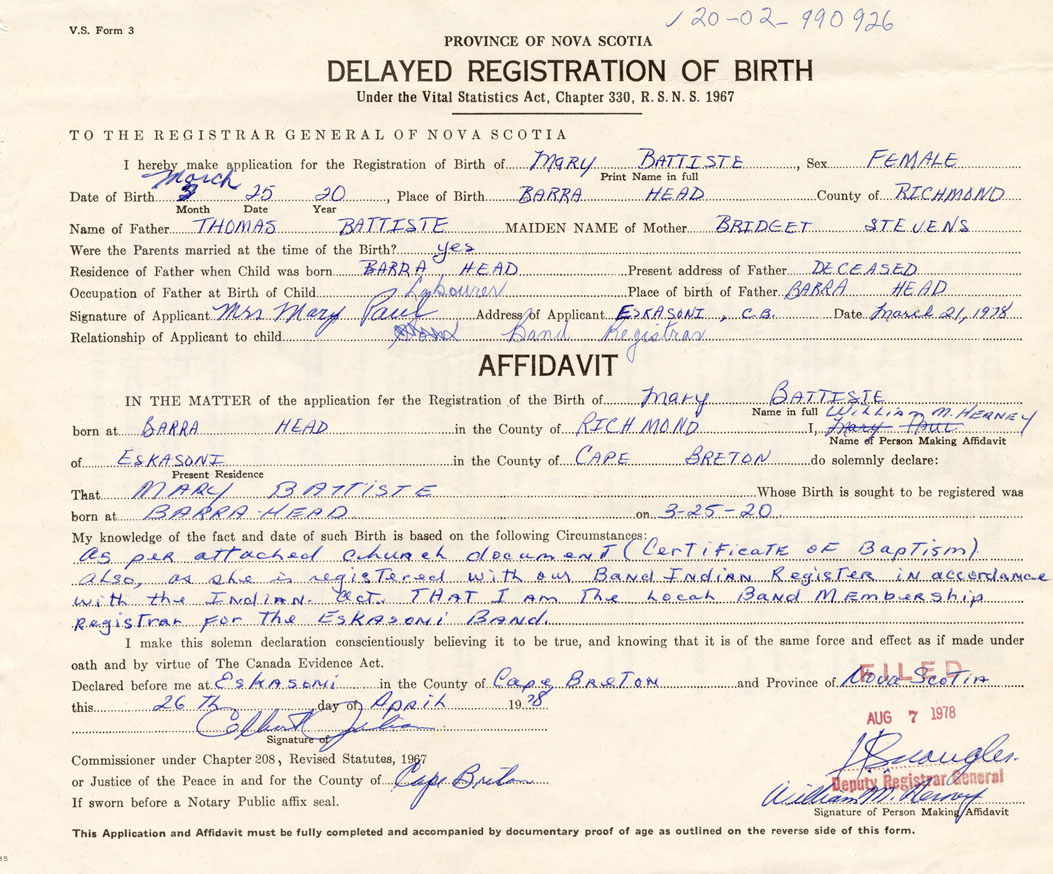 V.S. Form 3
120-02-990926
PROVINCE OF NOVA SCOTIA
DELAYED REGISTRATION OF BIRTH
Under the Vital Statistics Act, Chapter 330, R.S.N.S. 1967
TO THE REGISTRAR GENERAL OF NOVA SCOTIA
I hereby make application for the Registration of Birth of MARY BATTISTE, Sex FEMALE
Print Name in full
March
Date of Birth 3 25 20, Place of Birth BARRA HEAD County of RICHMOND
Month Date Year
Name of Father THOMAS BATTISTE MAIDEN NAME of Mother BRIDGET STEVENS
Were the Parents married at the time of the Birth? yes
Residence of Father when Child was born BARRA HEAD Present address of Father DECEASED
Occupation of Father at Birth of Child Labourer Place of birth of Father BARRA HEAD
Signature of Applicant Mrs Mary Paul Address of Applicant ESKASONI, C.B. Date March 21, 1978
Relationship of Applicant to child Band Registrar
AFFIDAVIT
IN THE MATTER of the application for the Registration of the Birth of Mary BATTISTE
Name in full WILLIAM M. HERNEY
born at BARRA HEAD in the County of RICHMOND I, Mary PAUL
Name of Person Making Affidavit
of ESKASONI in the County of CAPE BRETON do solemnly declare:
Present Residence
That MARY BATTISTE Whose Birth is sought to be registered was
born at BARRA-HEAD on 3-25-20
My knowledge of the fact and date of such Birth is based on the following Circumstances:
As per attached church document (Certificate of Baptism)
Also, as she is registered with our Band Indian Register in accordance
with the Indian Act. THAT I AM The Local Band Membership
Registrar for the ESKASONI BAND.
I make this solemn declaration conscientiously believing it to be true, and knowing that it is of the same force and effect as if made under
oath and by virtue of The Canada Evidence Act.
Declared before me at ESKASONI in the County of Cape BRETON and Province of Nova Scotia
FILED
this 26Th day of April 1978
AUG 7 1978
Signature of
Commissioner under Chapter 208, Revised Statutes, 1967
or Justice of the Peace in and for the County of Cape Breton
Deputy Registrar General
William M. Herney
If sworn before a Notary Public affix seal.
Signature of Person Making Affidavit
This Application and Affidavit must be fully completed and accompanied by documentary proof of age as outlined on the reverse side of this form.